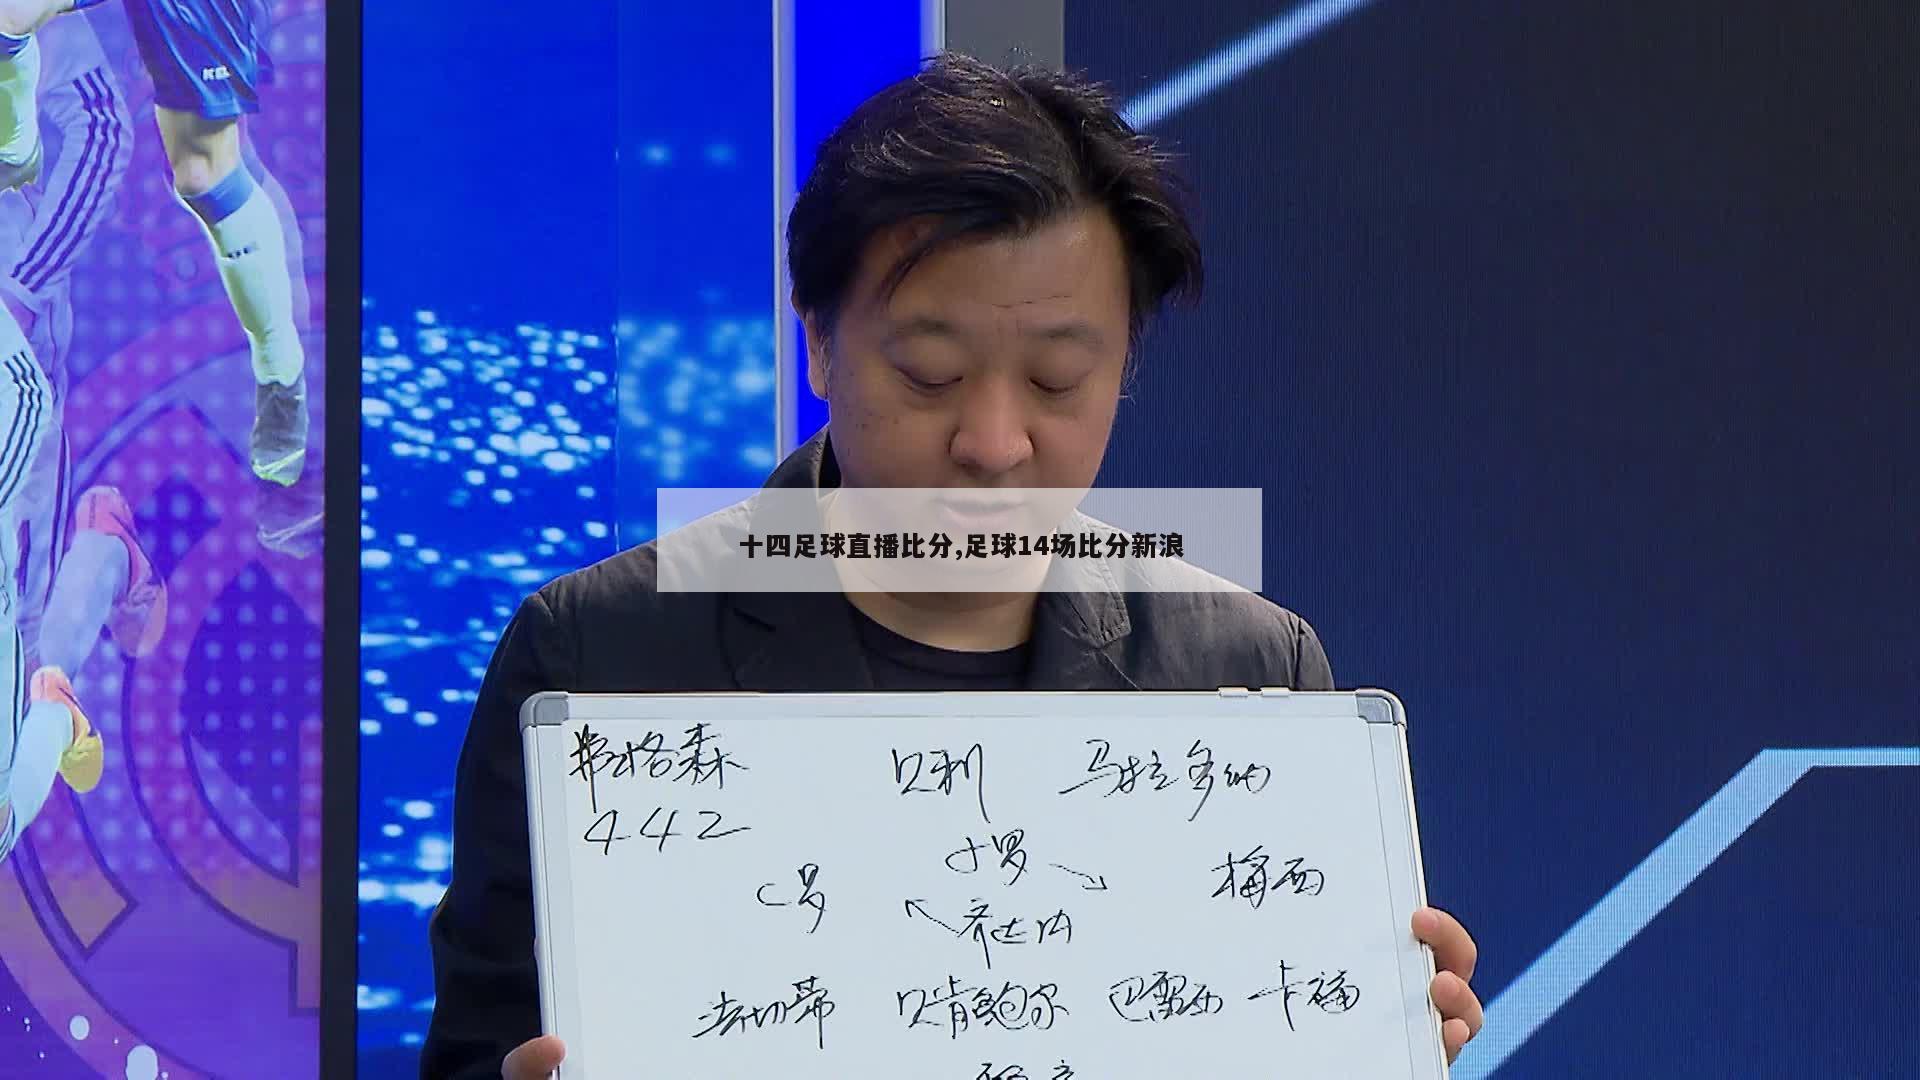 十四足球直播比分,足球14场比分新浪
弗格森 贝利 马拉多纳
442
小罗
C罗 梅西
齐达内
法切蒂 贝肯鲍尔 巴雷西 卡福